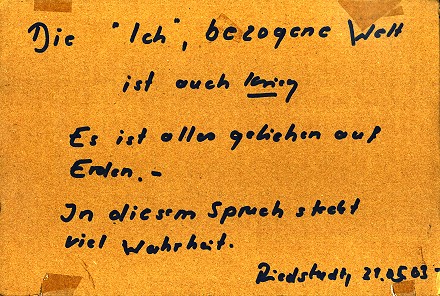 Die "Ich", bezogene Welt
ist auch Krieg
Es ist alles geliehen auf
Erden.-
In diesem Spruch steht
viel Wahrheit.
Riedstadt, 21.05.03-